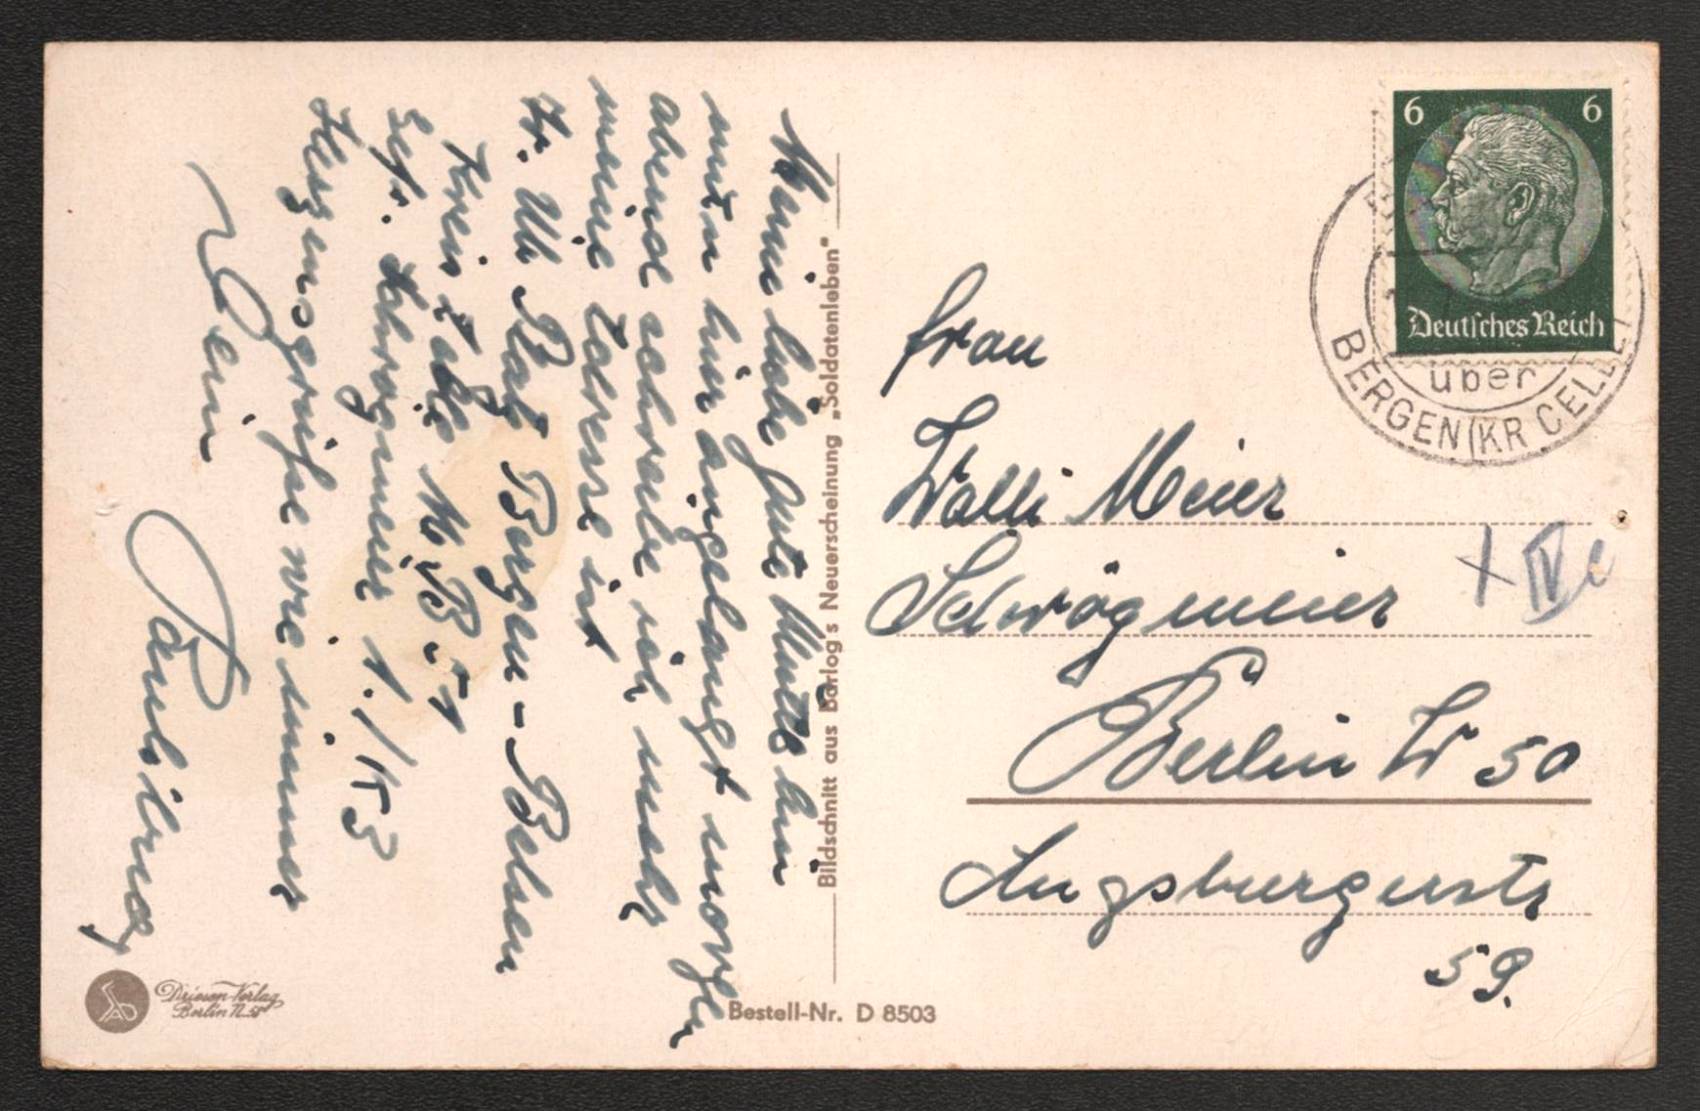 Meine liebe gute Mutti bin
nun hier angelangt morgen
abend schreibe ich mehr
meine Adresse ist
Tr. Üb. Platz Bergen-Belsen
Kreis Celle MB 51
Sch. Schrögmeier 1./153
Herzensgrüße wie immer
Dein
Bildschnitt aus Barlog's Neuerscheinung „Soldatenleben"
Bestell-Nr. D 8503
Driesen-Verlag
Berlin N. 58
6 6
Deutsches Reich
über
BERGEN (KR CELLE)
Frau
Walli Meier
Schrögmeier
Berlin W 50
Augsburgerstr
59.